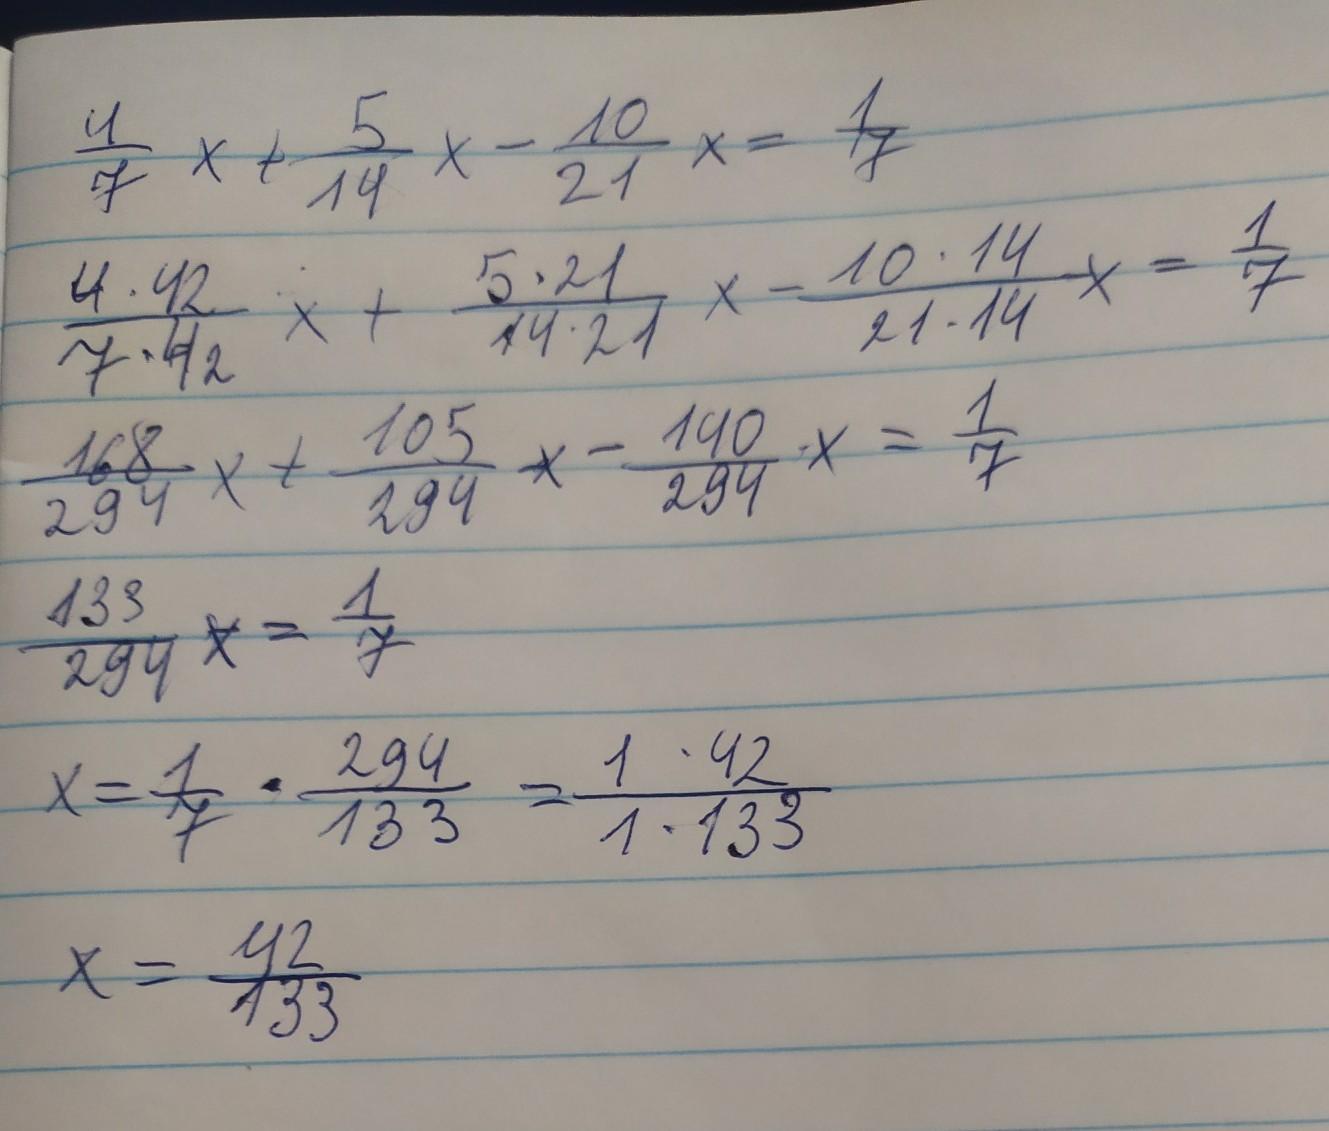 4/7 x + 5/14 x - 10/21 x = 1/7
4·42/7·42 x + 5·21/14·21 x - 10·14/21·14 x = 1/7
168/294 x + 105/294 x - 140/294 · x = 1/7
133/294 x = 1/7
x = 1/7 · 294/133 = 1·42/1·133
x = 42/133